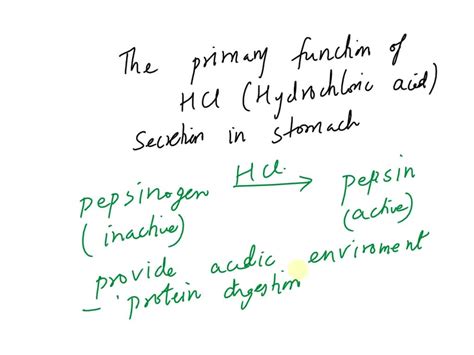 The primary function of
HCl (Hydrochloric acid)
Secretion in stomach
pepsinogen HCl → pepsin
(inactive) (active)
provide acidic enviroment
- protein digestion